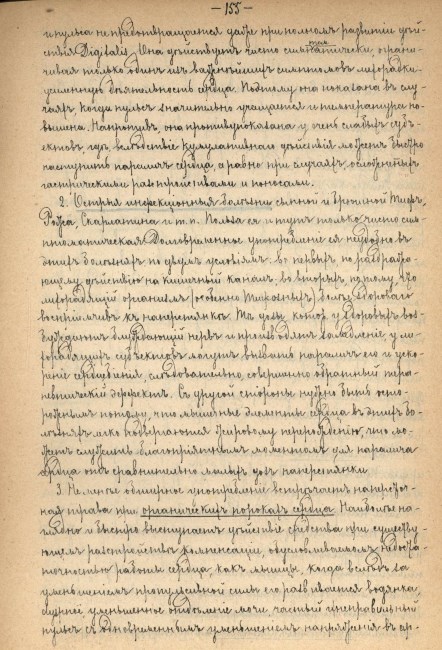 — 155 —
и пульса не предотвращается даже при полном развитии дѣй-
ствія Digitalis. Она дѣйствуетъ чисто симптоматически, ограни-
чивая только одинъ изъ важнѣйшихъ симптомовъ лихорадки,
усиленную дѣятельность сердца. Поэтому она показана въ слу-
чаяхъ, когда пульсъ значительно учащается и температура по-
вышена. Напротивъ, она противупоказана у очень слабыхъ субъ-
ектовъ, гдѣ, вслѣдствіе кумулативнаго дѣйствія можетъ быстро
наступить параличъ сердца, а равно при случаяхъ, осложненныхъ
гастрическими разстройствами и поносами.
2. Острыя инфекціонныя болѣзни: сыпной и брюшной тифъ,
Рожа, Скарлатина и т. п. Польза ея и тутъ только чисто сим-
птоматическая. Долговременное употребленіе ея неудобно въ
этихъ болѣзняхъ по двумъ условіямъ: во первыхъ, по раздража-
ющему дѣйствію на кишечный каналъ; во вторыхъ, потому, что
лихорадящій организмъ (особенно тифозныхъ) болѣе здороваго
воспріимчивъ къ наперстянкѣ. Тѣ дозы, которыя у здоровыхъ воз-
буждаютъ блуждающій нервъ и производятъ замедленіе, у ли-
хорадящихъ субъектовъ могутъ вызвать параличъ его и уско-
реніе сердцебіенія, слѣдовательно, совершенно обратный тера-
певтическій эффектъ. Съ другой стороны нужно быть осто-
рожнымъ потому, что мышечные элементы сердца въ этихъ бо-
лѣзняхъ легко подвергаются жировому перерожденію, что мо-
жетъ служить благопріятнымъ моментомъ для паралича
сердца отъ сравнительно малыхъ дозъ наперстянки.
3. Не менѣе обширное употребленіе встрѣчаетъ наперсточ-
ная трава при органическихъ порокахъ сердца. Наиболѣе на-
глядно и быстро выступаетъ дѣйствіе средства при существу-
ющемъ разстройствѣ компенсаціи, обусловливаемомъ недоста-
точностью работы сердца, какъ мышцы, когда вслѣдъ за
уменьшеніемъ пропульсивной силы его развивается водянка,
уменьшенное отдѣленіе мочи, частый и неправильный
пульсъ съ одновременнымъ уменьшеніемъ напряженія въ ар-